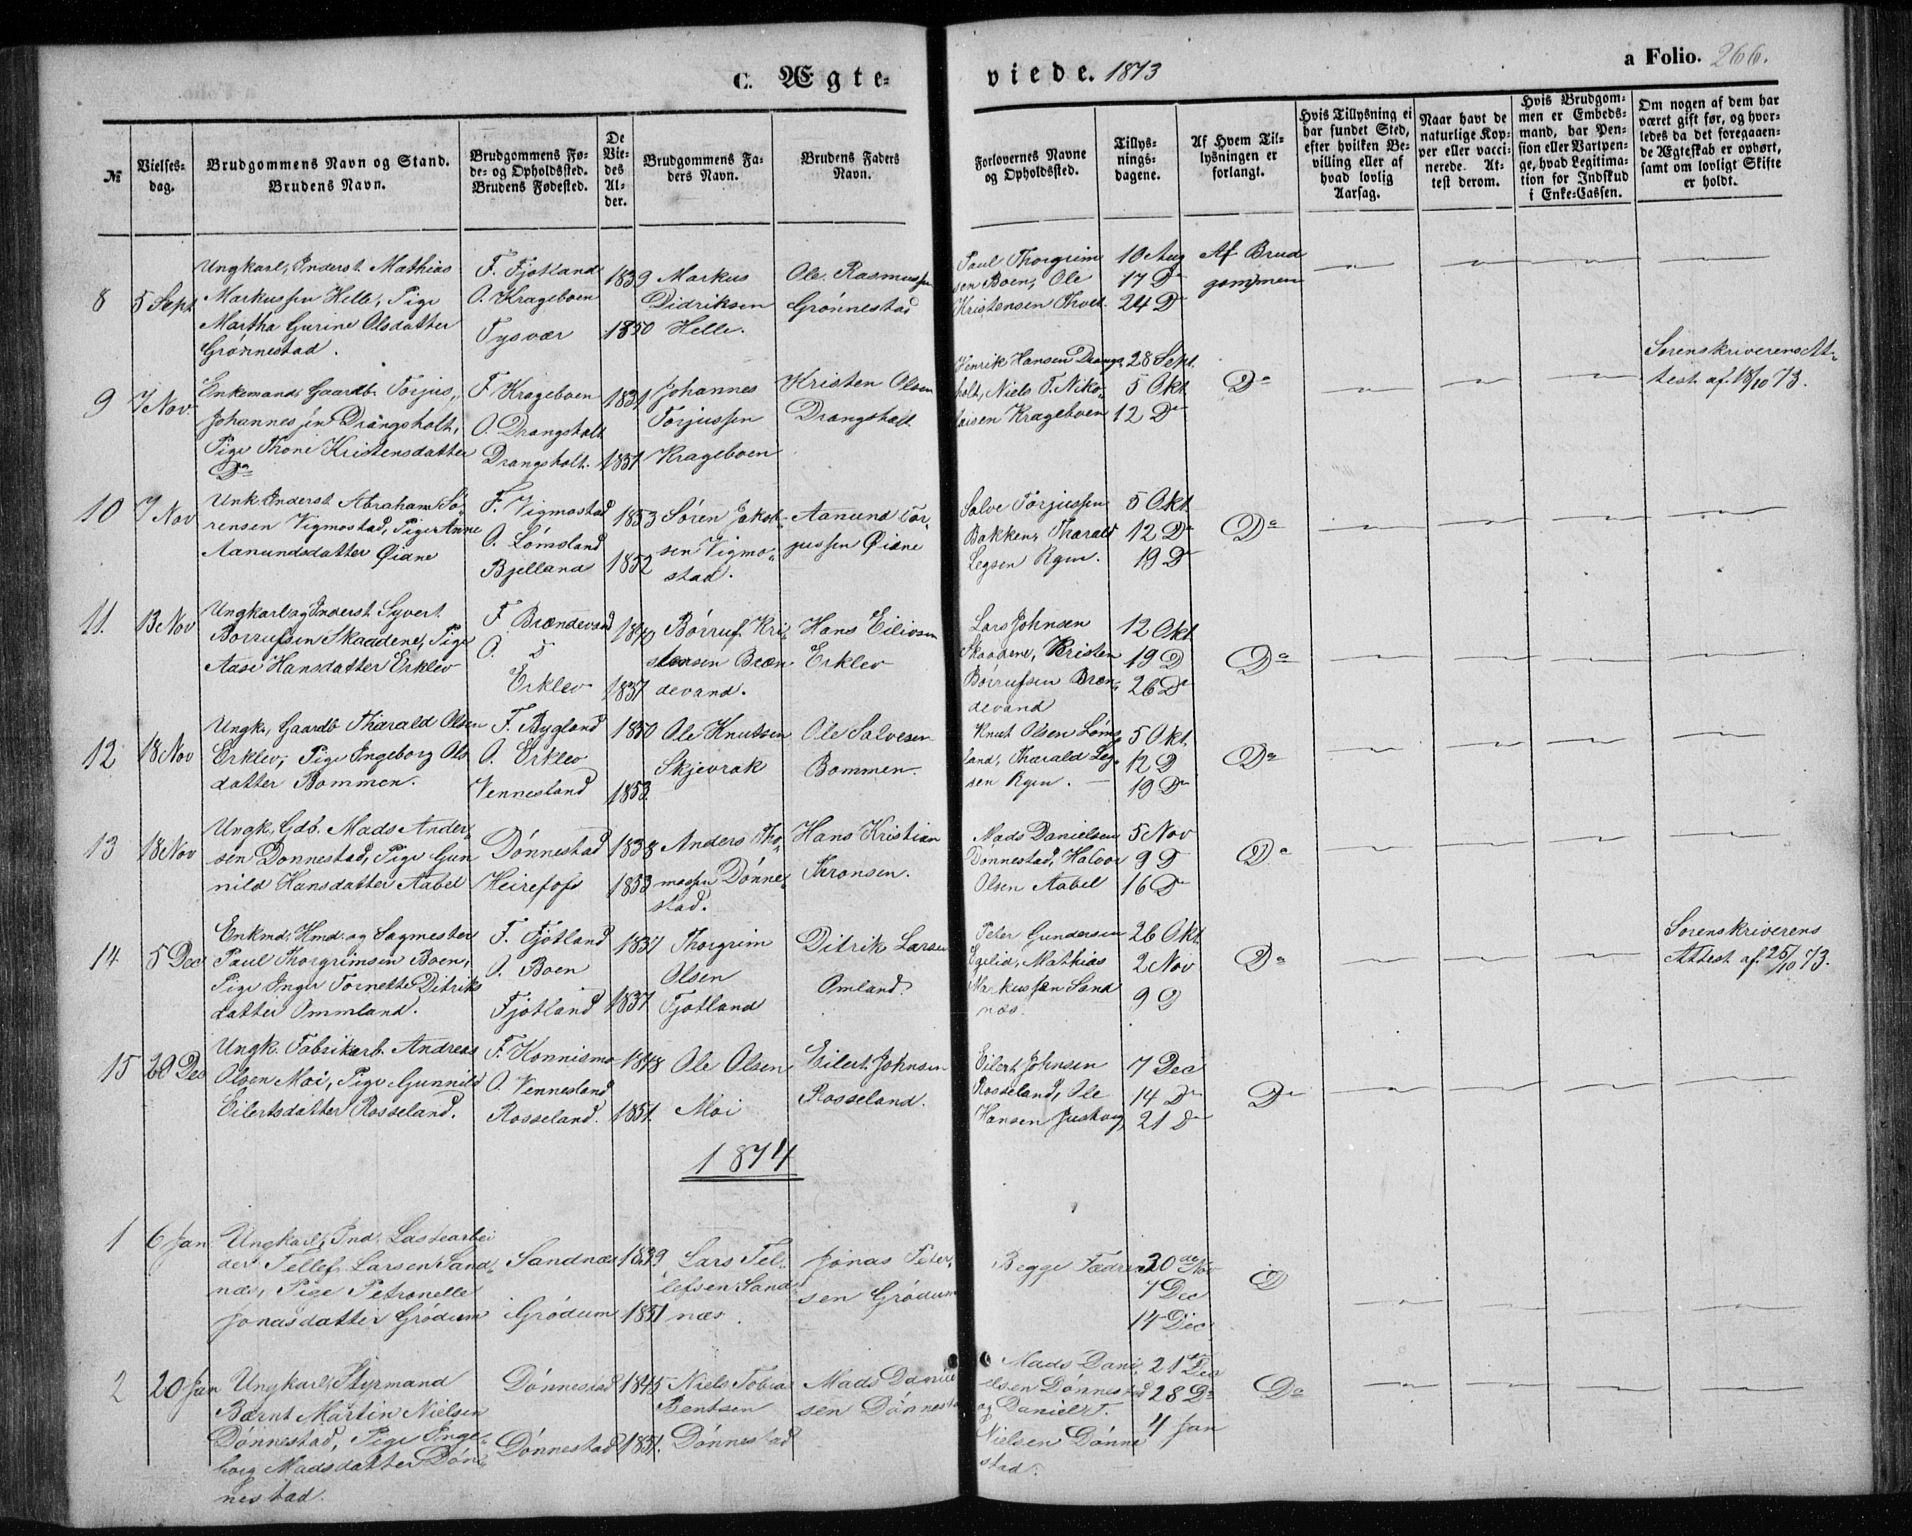 C. Ægte-
viede. 1873
a Folio. 266.
№
Vielses-
dag.
Brudgommens Navn og Stand.
Brudens Navn.
Brudgommens Fø-
de- og Opholdssted.
Brudens Fødested.
De
Vie-
des
Al-
der.
Brudgommens Fa-
ders Navn.
Brudens Faders
Navn.
Forlovernes Navne
og Opholdssted.
Tillys-
nings-
dagene.
Af Hvem Til-
lysningen er
forlangt.
Hvis Tillysning ei
har fundet Sted,
efter hvilken Be-
villing eller af
hvad lovlig
Aarsag.
Naar havt de
naturlige Kop-
per eller vacci-
nerede. At-
test derom.
Hvis Brudgom-
men er Embeds-
mand, har Pen-
sion eller Vartpen-
ge, hvad Legitima-
tion for Indskud
i Enke-Cassen.
Om nogen af dem har
været gift før, og hvor-
ledes da det foregaaen-
de Ægteskab er ophørt,
samt om lovligt Skifte
er holdt.
8
5 Sept
Ungkarl, Inderst Mathias
Markussen Helle, Pige
Martha Gurine Olsdatter
Grønnestad.
F. Fjotland
O. Krageboen
Tysvær
1839
1850
Markus
Didriksen
Helle.
Ole Rasmussen
Grønnestad
Paul Thorgrim
sen Boen, Ole
Kristensen Tveit
10 Aug
17 D
24 D
Af Brud
gommen
9
7 Nov
Enkemand, Gaardb. Torjus
Johannessen Drangsholt,
Pige Thone Kristensdatter
Do
F. Krageboen
O. Drangsholt
Drangsholt.
1831
1851
Johannes
Torjussen
Krageboen
Kristen Olsen
Drangsholt
Henrik Hansen Drangs
holt, Niels T. Niko-
laisen Krageboen
28 Sept.
5 Okt.
12 D
Do
Sorenskriverens At-
test af 18/10 73.
10
7 Nov
Unk. Inderst Abraham Sø-
rensen Vigmostad, Pige Anne
Aanundsdatter Øiane
F. Vigmostad
O. Lømsland
Bjelland
1853
1852
Søren
sen Vigmo-
stad.
Aanund Tor-
jussen Øiane
Salve Torjussen
Bakken, Tharald
Legsen Rgen.
5 Okt
12 D
19 D
Do
11.
13 Nov
Ungkarl og Inderst Syvert
Børrufsen Skaadene, Pige
Aase Hansdatter Erklev
F. Brændevand
O. D
Erklev
1840
1837
Børruf Kri-
stensen Bræn
devand.
Hans Eilivsen
Erklev
Lars Johnsen
Skaadene, Kristen
Børrufsen Bræn-
devand
12 Okt.
19 D
26 D
Do
12
18 Nov
Ungk., Gaardb Tharald Olsen
Erklev, Pige Ingeborg Ols
datter Bommen.
F. Bygland
O. Erklev
Vennesland
1850
1853
Ole Knutsen
Skjevrak
Ole Salvesen
Bommen.
Knut Olsen Løms-
land, Tharald Leg-
sen Rgen.
5 Okt.
12 D
19 D
Do
13
18 Nov
Ungk., Gdb. Mads Ander-
sen Dønnestad, Pige Gun
nild Hansdatter Aabel
Dønnestad
Heirefoss
1838
1853
Anders Tho-
massen Dønne-
stad.
Hans Kristian
Thronsen.
Mads Danielsen
Dønnestad, Halvor
Olsen Aabel
5 Nov
9 D
16 D
Do
14
5 Dec
Enkmd. Hmd. og Sagmester
Paul Thorgrimsen Boen,
Pige Inger Tornette Ditriks
datter Ommland.
F. Fjotland
O. Boen
Fjotland
1837
Thorgrim
Olsen
Fjotland
Ditrik Larsen
Omland.
Peter Gundersen
Egelid, Mathias
Markussen Sand
næs.
26 Okt.
2 Nov
9 D
Do
Sorenskriverens
Attest af 25/10 73.
15
20 Dec
Ungk. Fabrikarb. Andreas
Olsen Moi, Pige Gunnild
Eilertsdatter Rosseland.
F. Konnismo
O. Vennesland
Rosseland.
1848
1851.
Ole Olsen
Moi
Eilert Johnsen
Rosseland.
Eilert Johnsen
Rosseland, Ole
Hansen Justvig
7 Dec
14 D
21 D
Do
1874
1
6 Jan
Ungkarl, Ind. Lastearbei
der Tellef Larsen Sand-
næs, Pige Petronelle
Jonasdatter Grødum
Sandnæs
Grødum
1839
1851
Lars Tel-
lefsen Sand-
næs.
Jonas Peter-
sen Grødum
Begge Fædrene
30de Nov
7 Dec
14 Dec
D
2
20 Jan
Ungkarl, Styrmand
Bærnt Martin Nielsen
Dønnestad, Pige Inge-
borg Madsdatter Døn-
nestad.
Dønnestad
Dønnestad
1845
1851.
Niels Tobias
Bentsen
Dønnestad
Mads Daniel
sen Dønnestad
Mads Dani-
elsen Dønnestad
og Daniel T.
Nielsen Dønne
stad.
21 Dec
28 D
4 Jan
Do